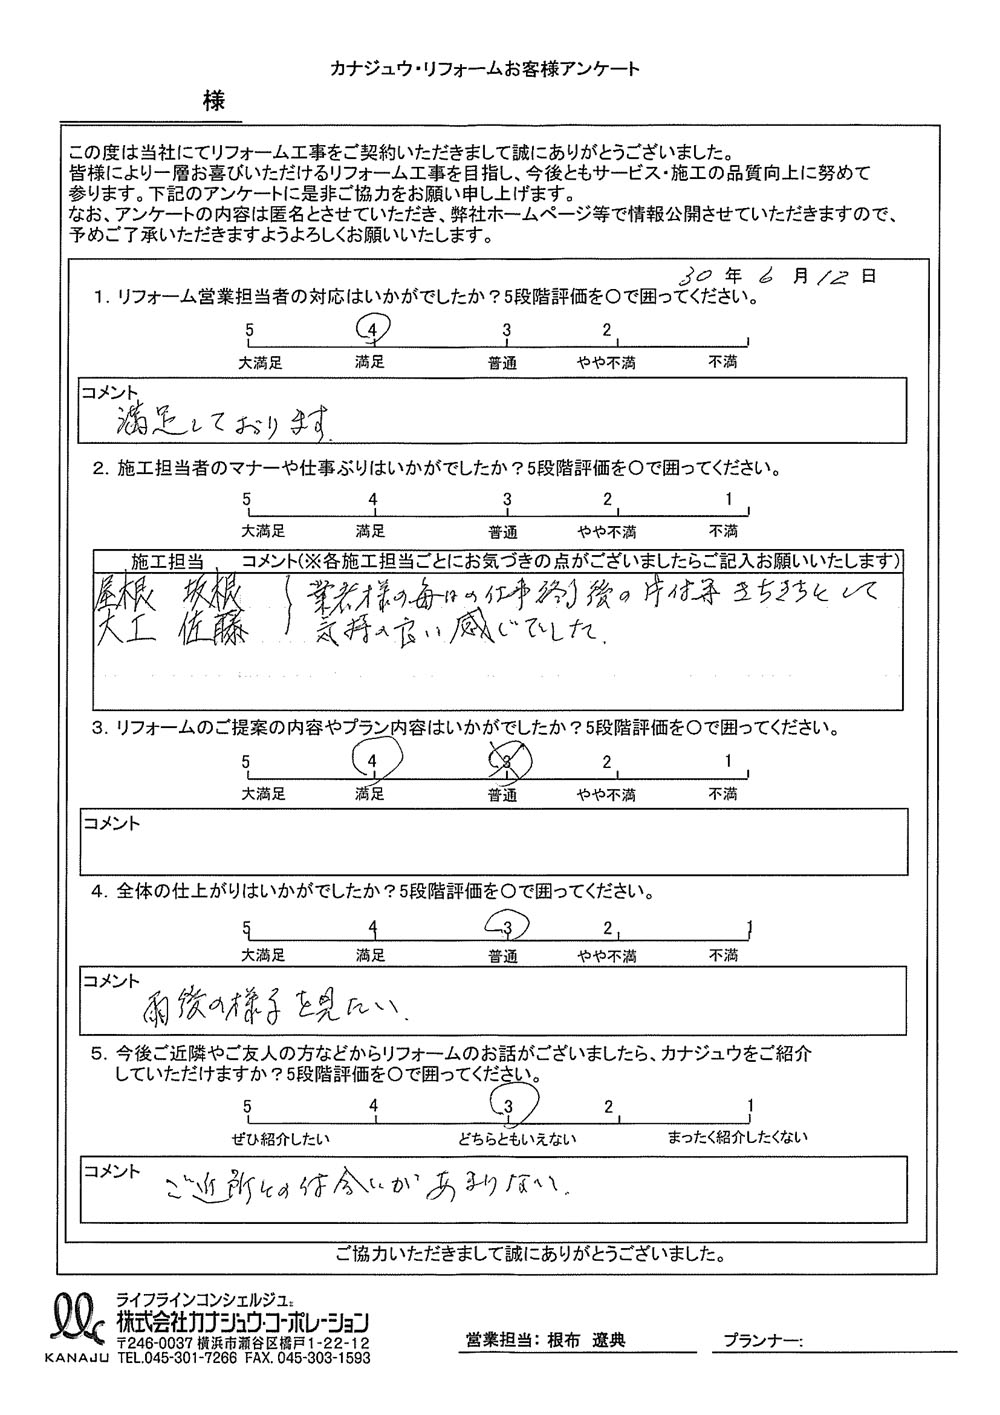 カナジュウ・リフォームお客様アンケート
様
この度は当社にてリフォーム工事をご契約いただきまして誠にありがとうございました。
皆様により一層お喜びいただけるリフォーム工事を目指し、今後ともサービス・施工の品質向上に努めて
参ります。下記のアンケートに是非ご協力をお願い申し上げます。
なお、アンケートの内容は匿名とさせていただき、弊社ホームページ等で情報公開させていただきますので、
予めご了承いただきますようよろしくお願いいたします。
30 年 6 月 12 日
1. リフォーム営業担当者の対応はいかがでしたか？5段階評価を〇で囲ってください。
5 4 3 2
大満足 満足 普通 やや不満 不満
コメント
満足しております.
2. 施工担当者のマナーや仕事ぶりはいかがでしたか？5段階評価を〇で囲ってください。
5 4 3 2 1
大満足 満足 普通 やや不満 不満
施工担当 コメント(※各施工担当ごとにお気づきの点がございましたらご記入お願いいたします)
屋根 坂根 業者様の毎日の仕事終了後の片付等きちきちとして
大工 佐藤 気持の良い感じでした.
3. リフォームのご提案の内容やプラン内容はいかがでしたか？5段階評価を〇で囲ってください。
5 4 3 2 1
大満足 満足 普通 やや不満 不満
コメント
4. 全体の仕上がりはいかがでしたか？5段階評価を〇で囲ってください。
5 4 3 2 1
大満足 満足 普通 やや不満 不満
コメント
雨後の様子を見たい.
5. 今後ご近隣やご友人の方などからリフォームのお話がございましたら、カナジュウをご紹介
していただけますか？5段階評価を〇で囲ってください。
5 4 3 2 1
ぜひ紹介したい どちらともいえない まったく紹介したくない
コメント
ご近所との付合いがあまりない.
ご協力いただきまして誠にありがとうございました。
ライフラインコンシェルジュ
株式会社カナジュウ・コーポレーション
〒246-0037 横浜市瀬谷区橋戸1-22-12
KANAJU TEL.045-301-7266 FAX. 045-303-1593
営業担当: 根布 遼典
プランナー: